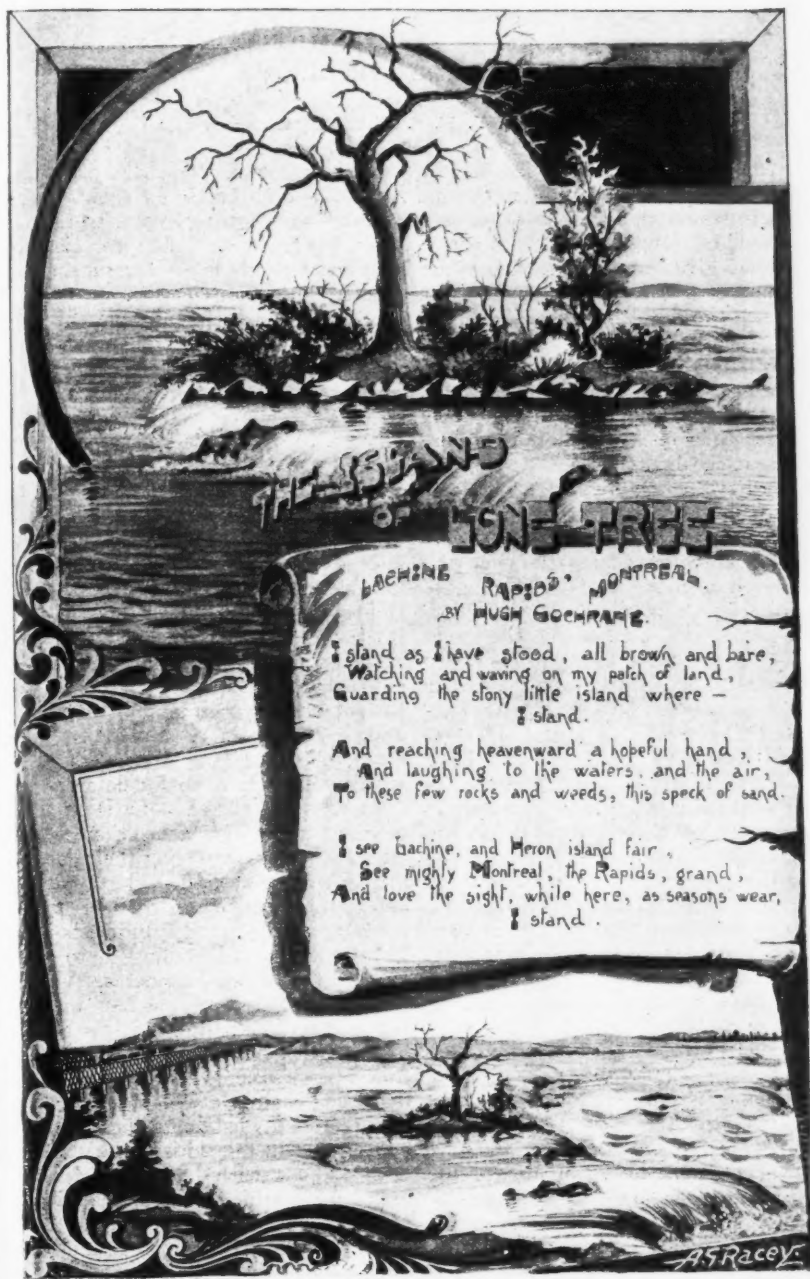 THE ISLAND
OF LONE TREE
LACHINE RAPIDS, MONTREAL.
BY HUGH COCHRANE.
I stand as I have stood, all brown and bare,
Watching and waving on my patch of land,
Guarding the stony little island where –
I stand.
And reaching heavenward a hopeful hand,
And laughing to the waters, and the air,
To these few rocks and weeds, this speck of sand.
I see Lachine, and Heron island fair,
See mighty Montreal, the Rapids, grand,
And love the sight, while here, as seasons wear,
I stand.
A.G. Racey.